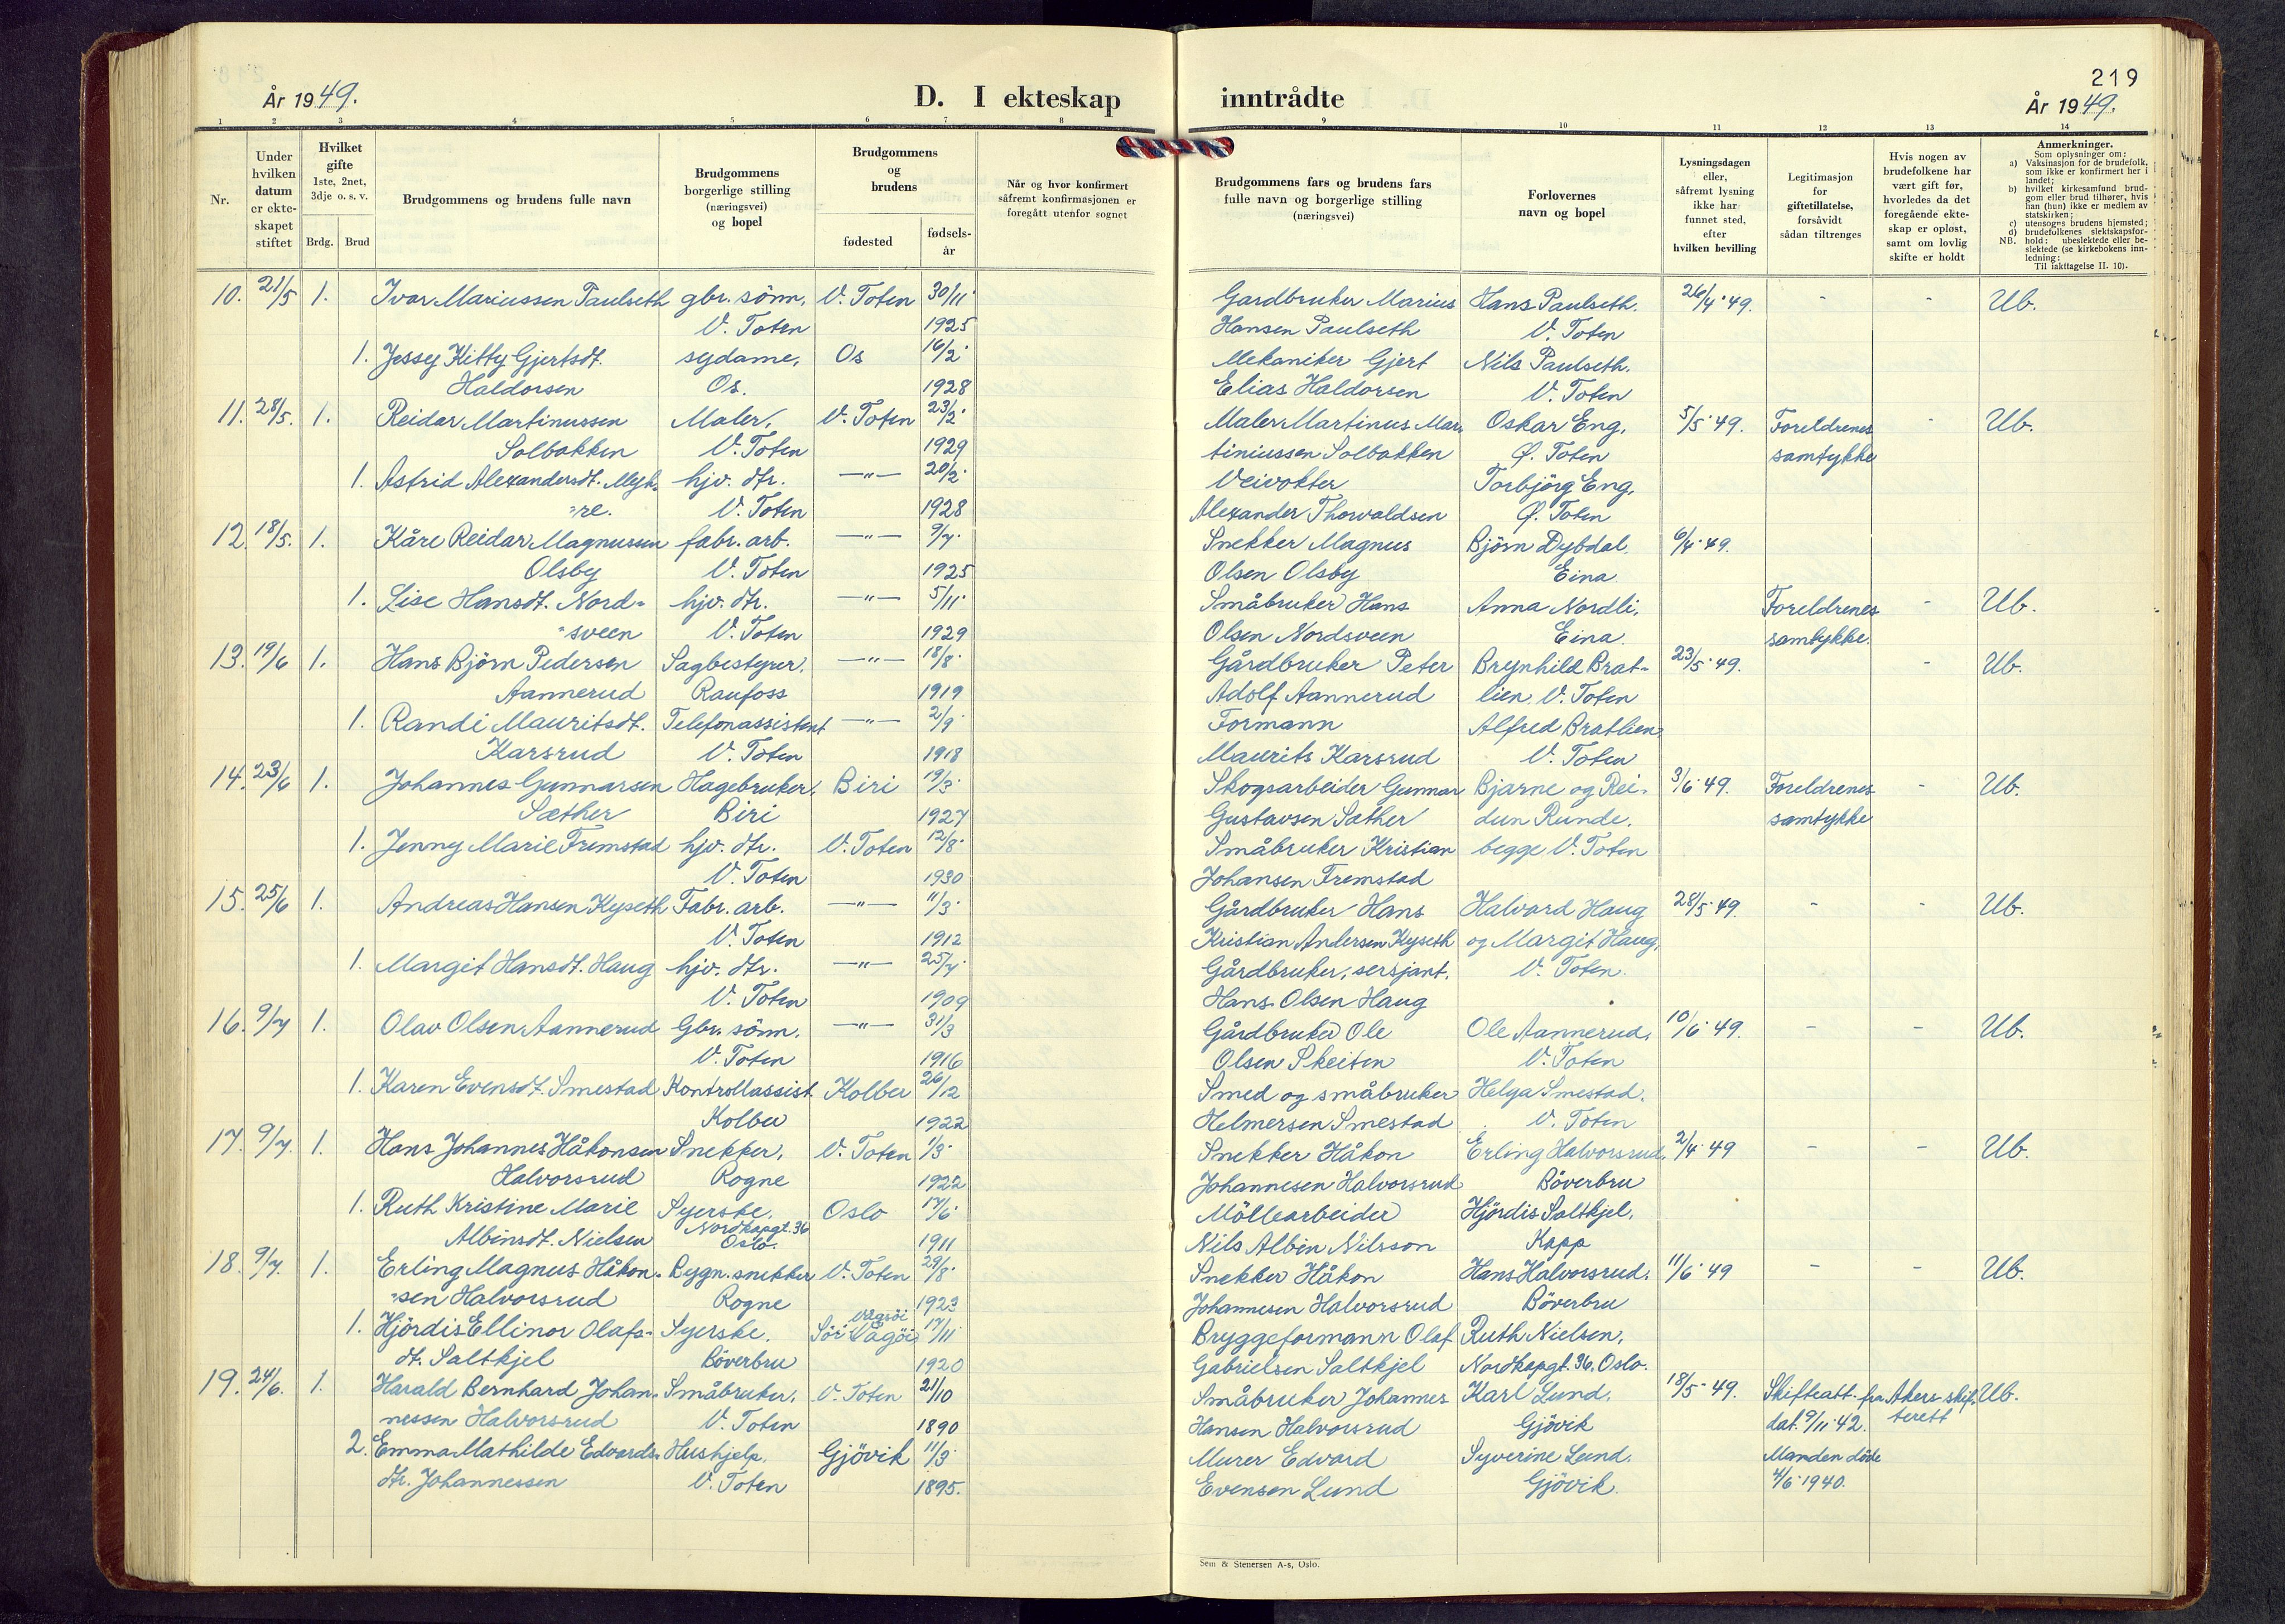 219
År 1949.
D. I ekteskap
inntrådte
År 1949.
1 2 3 4 5 6 7 8 9 10 11 12 13 14
Nr.
Under hvilken datum er ekteskapet stiftet
Hvilket gifte 1ste, 2net, 3dje o. s. v.
Brdg. Brud
Brudgommens og brudens fulle navn
Brudgommens borgerlige stilling (næringsvei) og bopel
Brudgommens og brudens
fødested
fødsels-år
Når og hvor konfirmert såfremt konfirmasjonen er foregått utenfor sognet
Brudgommens fars og brudens fars fulle navn og borgerlige stilling (næringsvei)
Forlovernes navn og bopel
Lysningsdagen eller, såfremt lysning ikke har funnet sted, efter hvilken bevilling
Legitimasjon for giftetillatelse, forsåvidt sådan tiltrenges
Hvis nogen av brudefolkene har vært gift før, hvorledes da det foregående ekteskap er opløst, samt om lovlig skifte er holdt
Anmerkninger.
Som oplysninger om:
a) Vaksinasjon for de brudefolk, som ikke er konfirmert her i landet;
b) hvilket kirkesamfund brudgom eller brud tilhører, hvis han (hun) ikke er medlem av statskirken;
c) utensogns brudens hjemsted;
d) brudefolkenes slektskapsforhold: ubeslektede eller beslektede (se kirkebokens innledning:
NB.
Til iakttagelse II. 10).
10. 21/5 1. Ivar Mariussen Paulseth gbr. sönn, V. Toten 30/11 Gardbruker Marius Hans Paulseth. 26/4·49. - - Ub.
V. Toten 1925 Hansen Paulseth V. Toten
1. Jessey Kitty Gjertsdt. sydame, Os 16/2· Mekaniker Gjert Nils Paulseth.
Haldorsen Os. 1928 Elias Haldorsen V. Toten
11. 28/5. 1. Reidar Martinussen Maler, V. Toten 23/2· Maler Martinus Mar Oskar Eng, 5/5·49. Foreldrenes - Ub.
Solbakken V. Toten 1929 tiniussen Solbakken Ø. Toten samtykke
1. Astrid Alexandersdt. Myh- hjv. dtr. —"— 20/2· Veivokter Torbjörg Eng,
"re. V. Toten 1928 Alexander Thorvaldsen Ø. Toten
12. 18/5. 1. Kåre Reidar Magnussen fabr. arb. —"— 9/7· Snekker Magnus Björn Dybdal, 6/4·49.
Olsby V. Toten 1925 Olsen Olsby Eina.
1. Lise Hansdt. Nord- hjv. dtr. —"— 5/11· Småbruker Hans Anna Nordli, Foreldrenes - Ub.
"sveen V. Toten 1929 Olsen Nordsveen Eina. samtykke.
13. 19/6 1. Hans Björn Pedersen Sagbestyrer, —"— 18/8· Gårdbruker Peter Brynhild Brat- 23/5·49. - Ub.
Aannerud Raufoss 1919 Adolf Aannerud lien, V. Toten
1. Randi Mauritsdt. Telefonassistent —"— 2/9· Formann Alfred Bratlien,
Karsrud V. Toten 1918 Maurits Karsrud V. Toten
14. 23/6 1. Johannes Gunnarsen Hagebruker, Biri 19/3· Skogsarbeider Gunnar Bjarne og Rei- 3/6·49. Foreldrenes - Ub.
Sæther Biri 1927 Gustavsen Sæther dun Runde, samtykke
1. Jenny Marie Fremstad hjv. dtr. V. Toten 12/8· Småbruker Kristian begge V. Toten
V. Toten 1930 Johansen Fremstad
15. 25/6 1. Andreas Hansen Kyseth Fabr. arb. —"— 11/3· Gårdbruker Hans Halvard Haug 28/5·49. - - Ub.
V. Toten 1912 Kristian Andersen Kyseth og Margit Haug,
1. Margit Hansdt. Haug hjv. dtr. —"— 25/7· Gårdbruker, sersjant, V. Toten.
V. Toten 1909 Hans Olsen Haug
16. 9/7 1. Olav Olsen Aannerud Gbr. sönn, —"— 31/3 Gårdbruker Ole Ole Aannerud, 10/6·49. - - Ub.
V. Toten 1916 Olsen Skeiten V. Toten
1. Karen Evensdt. Smestad Kontrollassist. Kolbu 26/12 Smed og småbruker Helga Smestad.
Kolbu 1922 Helmersen Smestad V. Toten
17. 9/7. 1. Hans Johannes Håkonsen Snekker, V. Toten 1/3· Snekker Håkon Erling Halvorsrud, 2/4·49 - - Ub.
Halvorsrud Rogne 1922 Johannesen Halvorsrud Böverbru
1. Ruth Kristine Marie Syerske, Oslo 17/6· Möllearbeider Hjördis Saltkjel,
Albinsdt. Nielsen Nordkapgt. 36 Oslo. 1911 Nils Albin Nilsson Kapp
18. 9/7. 1. Erling Magnus Håkon- Bygn. snekker V. Toten 29/8· Snekker Håkon Hans Halvorsrud, 11/6·49 - - Ub.
"sen Halvorsrud Rogne 1923 Johannesen Halvorsrud Böverbru
1. Hjördis Ellinor Olafs- Syerske. Sör Vågsöi 17/11· Bryggeformann Olaf Ruth Nielsen,
dt. Saltkjel Böverbru 1920 Gabrielsen Saltkjel Nordkapgt. 36, Oslo.
19. 24/6. 1. Harald Bernhard Johan- Småbruker, V. Toten 21/10 Småbruker Johannes Karl Lund, 18/5·49. Skifteatt. fra Akers skif- Ub.
nessen Halvorsrud V. Toten 1890 Hansen Halvorsrud Gjövik dat. 9/11·42. terett
2. Emma Mathilde Edvards- Hushjelp, Gjövik 11/3· Murer Edvard Syverine Lund, Manden döde
dtr. Johannessen V. Toten 1895. Evensen Lund Gjövik. 4/6·1940.
Sem & Stenersen A-s, Oslo.